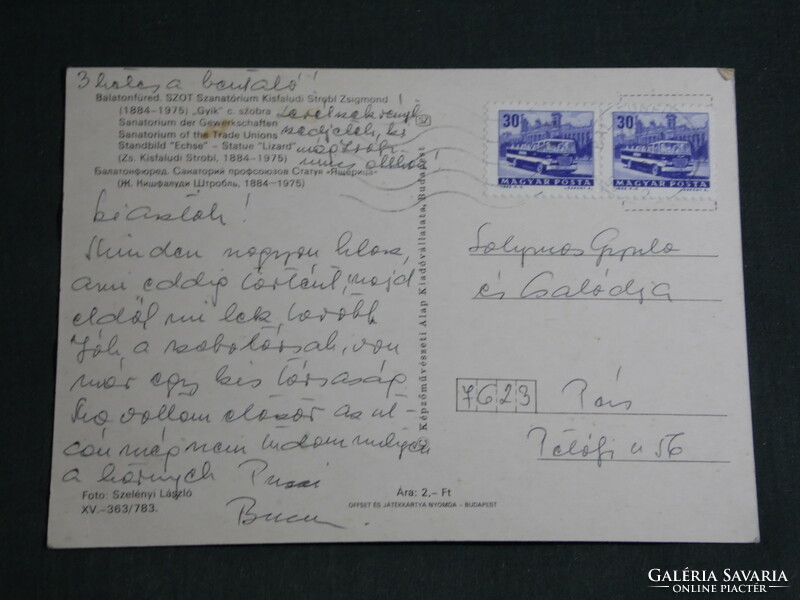 3 halas a bontaló!
Balatonfüred. SZOT Szanatórium Kisfaludi Strobl Zsigmond
(1884–1975) „Gyík" c. szobra
Sanatorium der Gewerkschaften
Sanatorium of the Trade Unions
Standbild "Echse" – Statue "Lizard"
(Zs. Kisfaludi Strobl, 1884–1975)
Балатонфюред. Санаторий профсоюзов Статуя «Ящерица»
(Ж. Кишфалуди Штробль, 1884–1975)
Minden nagyon
ami eddig történt, majd
eldől mi lesz, tovább
Jók a szobatársak, van
már egy kis társaság
Ma voltam először az ut-
cán még nem tudom milyen
a környék Puszi
Foto: Szelényi László
XV.–363/783.
Ára: 2,– Ft
OFFSET ÉS JÁTÉKKÁRTYA NYOMDA – BUDAPEST
Képzőművészeti Alap Kiadóvállalata, Budapest
30
MAGYAR POSTA
30
MAGYAR POSTA
Solymos Gyula
és Családja
7623 Pécs
Petőfi u 56
GALÉRIA SAVARIA
ONLINE PIACTÉR